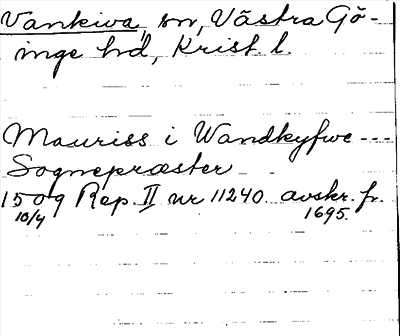 Vankiva, sn, Västra Gö-
inge hd, Krist. l.
Mauriss i Wandkyfwe ---
Sognepræster
1509 Rep. II nr 11240. avskr. fr.
10/4 1695.